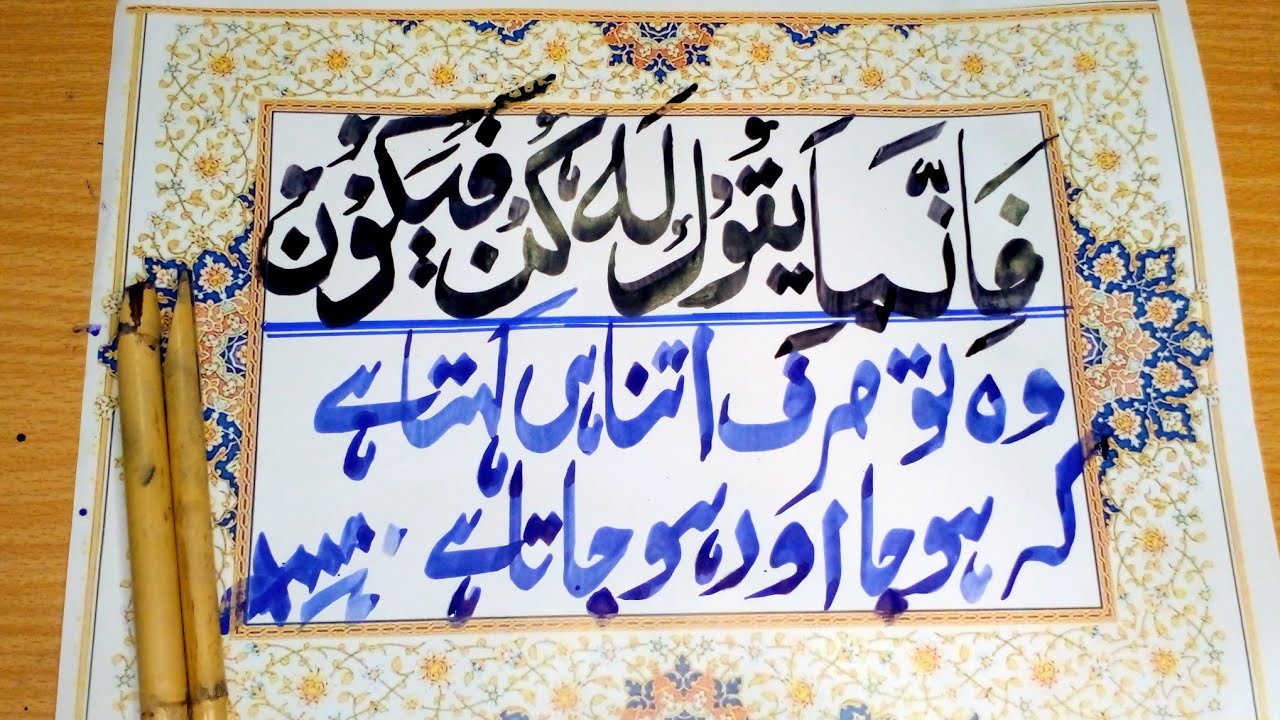 فَاِنَّمَا يَقُوْلُ لَهٗ كُنْ فَيَكُوْنُ
وہ تو صرف اتنا ہی کہتا ہے
کہ ہو جا اور ہو جاتا ہے